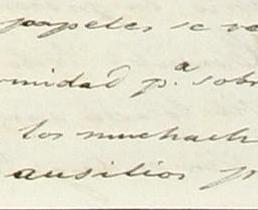 papeles se ve
rnidad p.ª sobr
los muchach
ausilios p